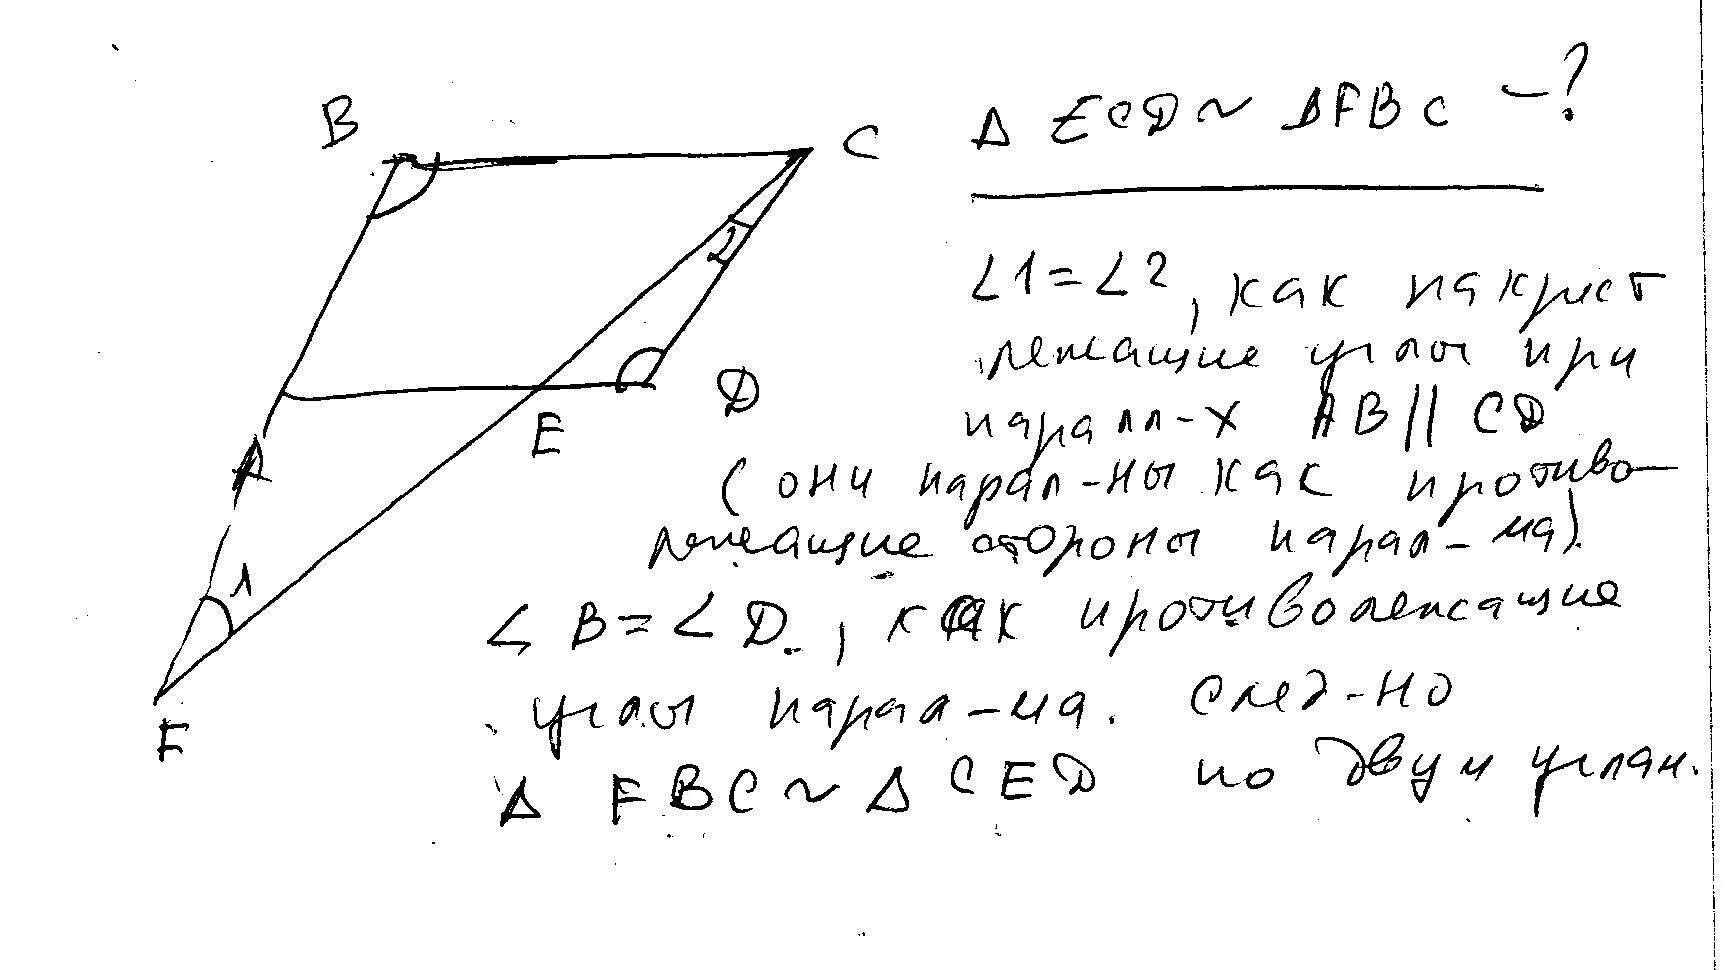 B
C
2
D
E
A
1
F
Δ ECD ~ ΔFBC -?
∠1=∠2, как накрест
лежащие углы при
паралл-х AB||CD
(они парал-ны как противо-
лежащие стороны парал-ма).
∠B=∠D, как противолежащие
углы парал-ма. След-но
Δ FBC ~ Δ CED по двум углам.